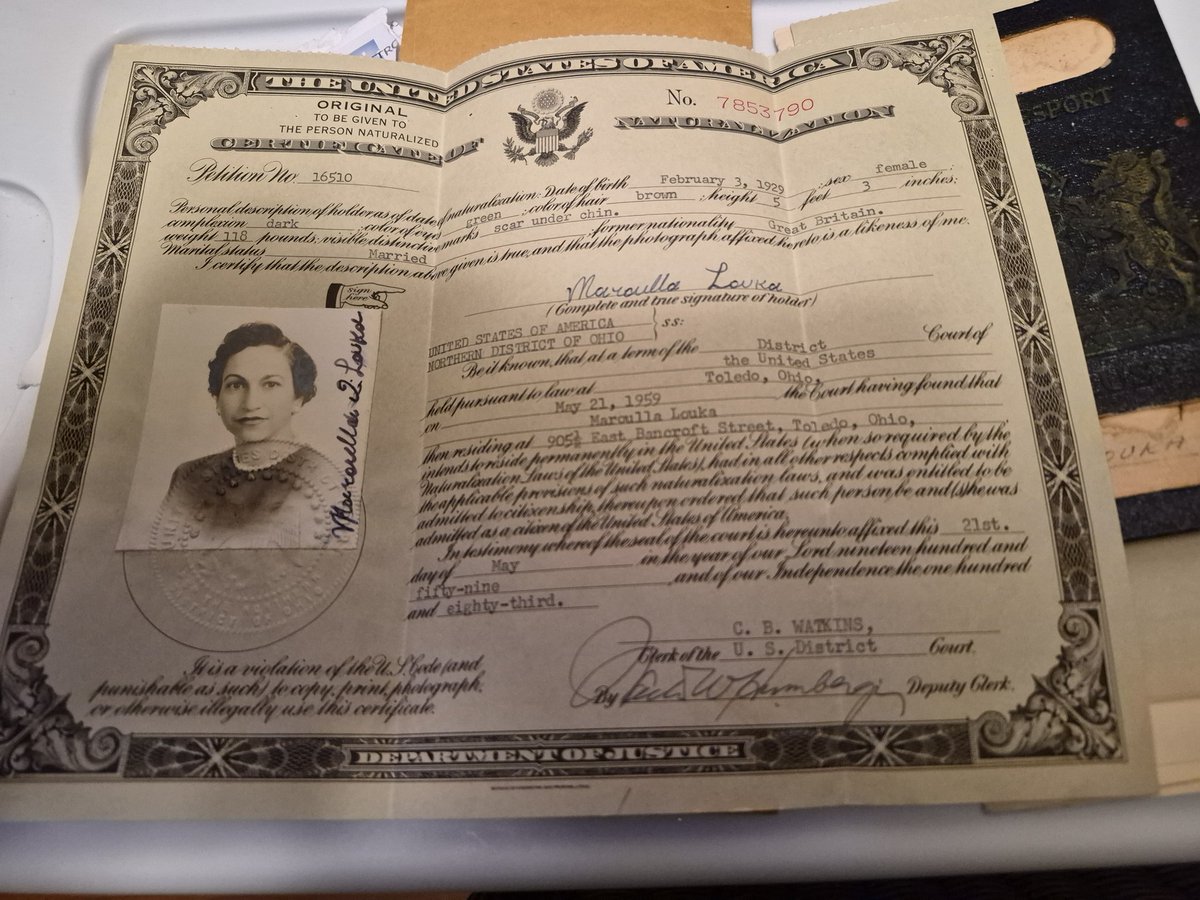 THE UNITED STATES OF AMERICA
ORIGINAL
TO BE GIVEN TO
THE PERSON NATURALIZED
No. 7853790
CERTIFICATE OF NATURALIZATION
Petition No. 16510
Personal description of holder as of date of naturalization: Date of birth February 3, 1929 ; sex female
complexion dark ; color of eyes green ; color of hair brown ; height 5 feet 3 inches;
weight 118 pounds; visible distinctive marks scar under chin.
Marital status Married former nationality Great Britain.
I certify that the description above given is true, and that the photograph affixed hereto is a likeness of me.
sign here
Maroulla Louka
(Complete and true signature of holder)
Maroulla Louka
UNITED STATES OF AMERICA
NORTHERN DISTRICT OF OHIO } ss:
Be it known, that at a term of the District Court of
the United States
held pursuant to law at Toledo, Ohio,
on May 21, 1959 the Court having found that
Maroulla Louka
then residing at 905½ East Bancroft Street, Toledo, Ohio,
intends to reside permanently in the United States (when so required by the
Naturalization Laws of the United States), had in all other respects complied with
the applicable provisions of such naturalization laws, and was entitled to be
admitted to citizenship, thereupon ordered that such person be and (s)he was
admitted as a citizen of the United States of America.
In testimony whereof the seal of the court is hereunto affixed this 21st.
day of May in the year of our Lord nineteen hundred and
fifty-nine and of our Independence the one hundred
and eighty-third.
C. B. WATKINS,
Clerk of the U. S. District Court.
By Deputy Clerk.
It is a violation of the U.S. Code (and
punishable as such) to copy, print, photograph,
or otherwise illegally use this certificate.
DEPARTMENT OF JUSTICE
SPORT